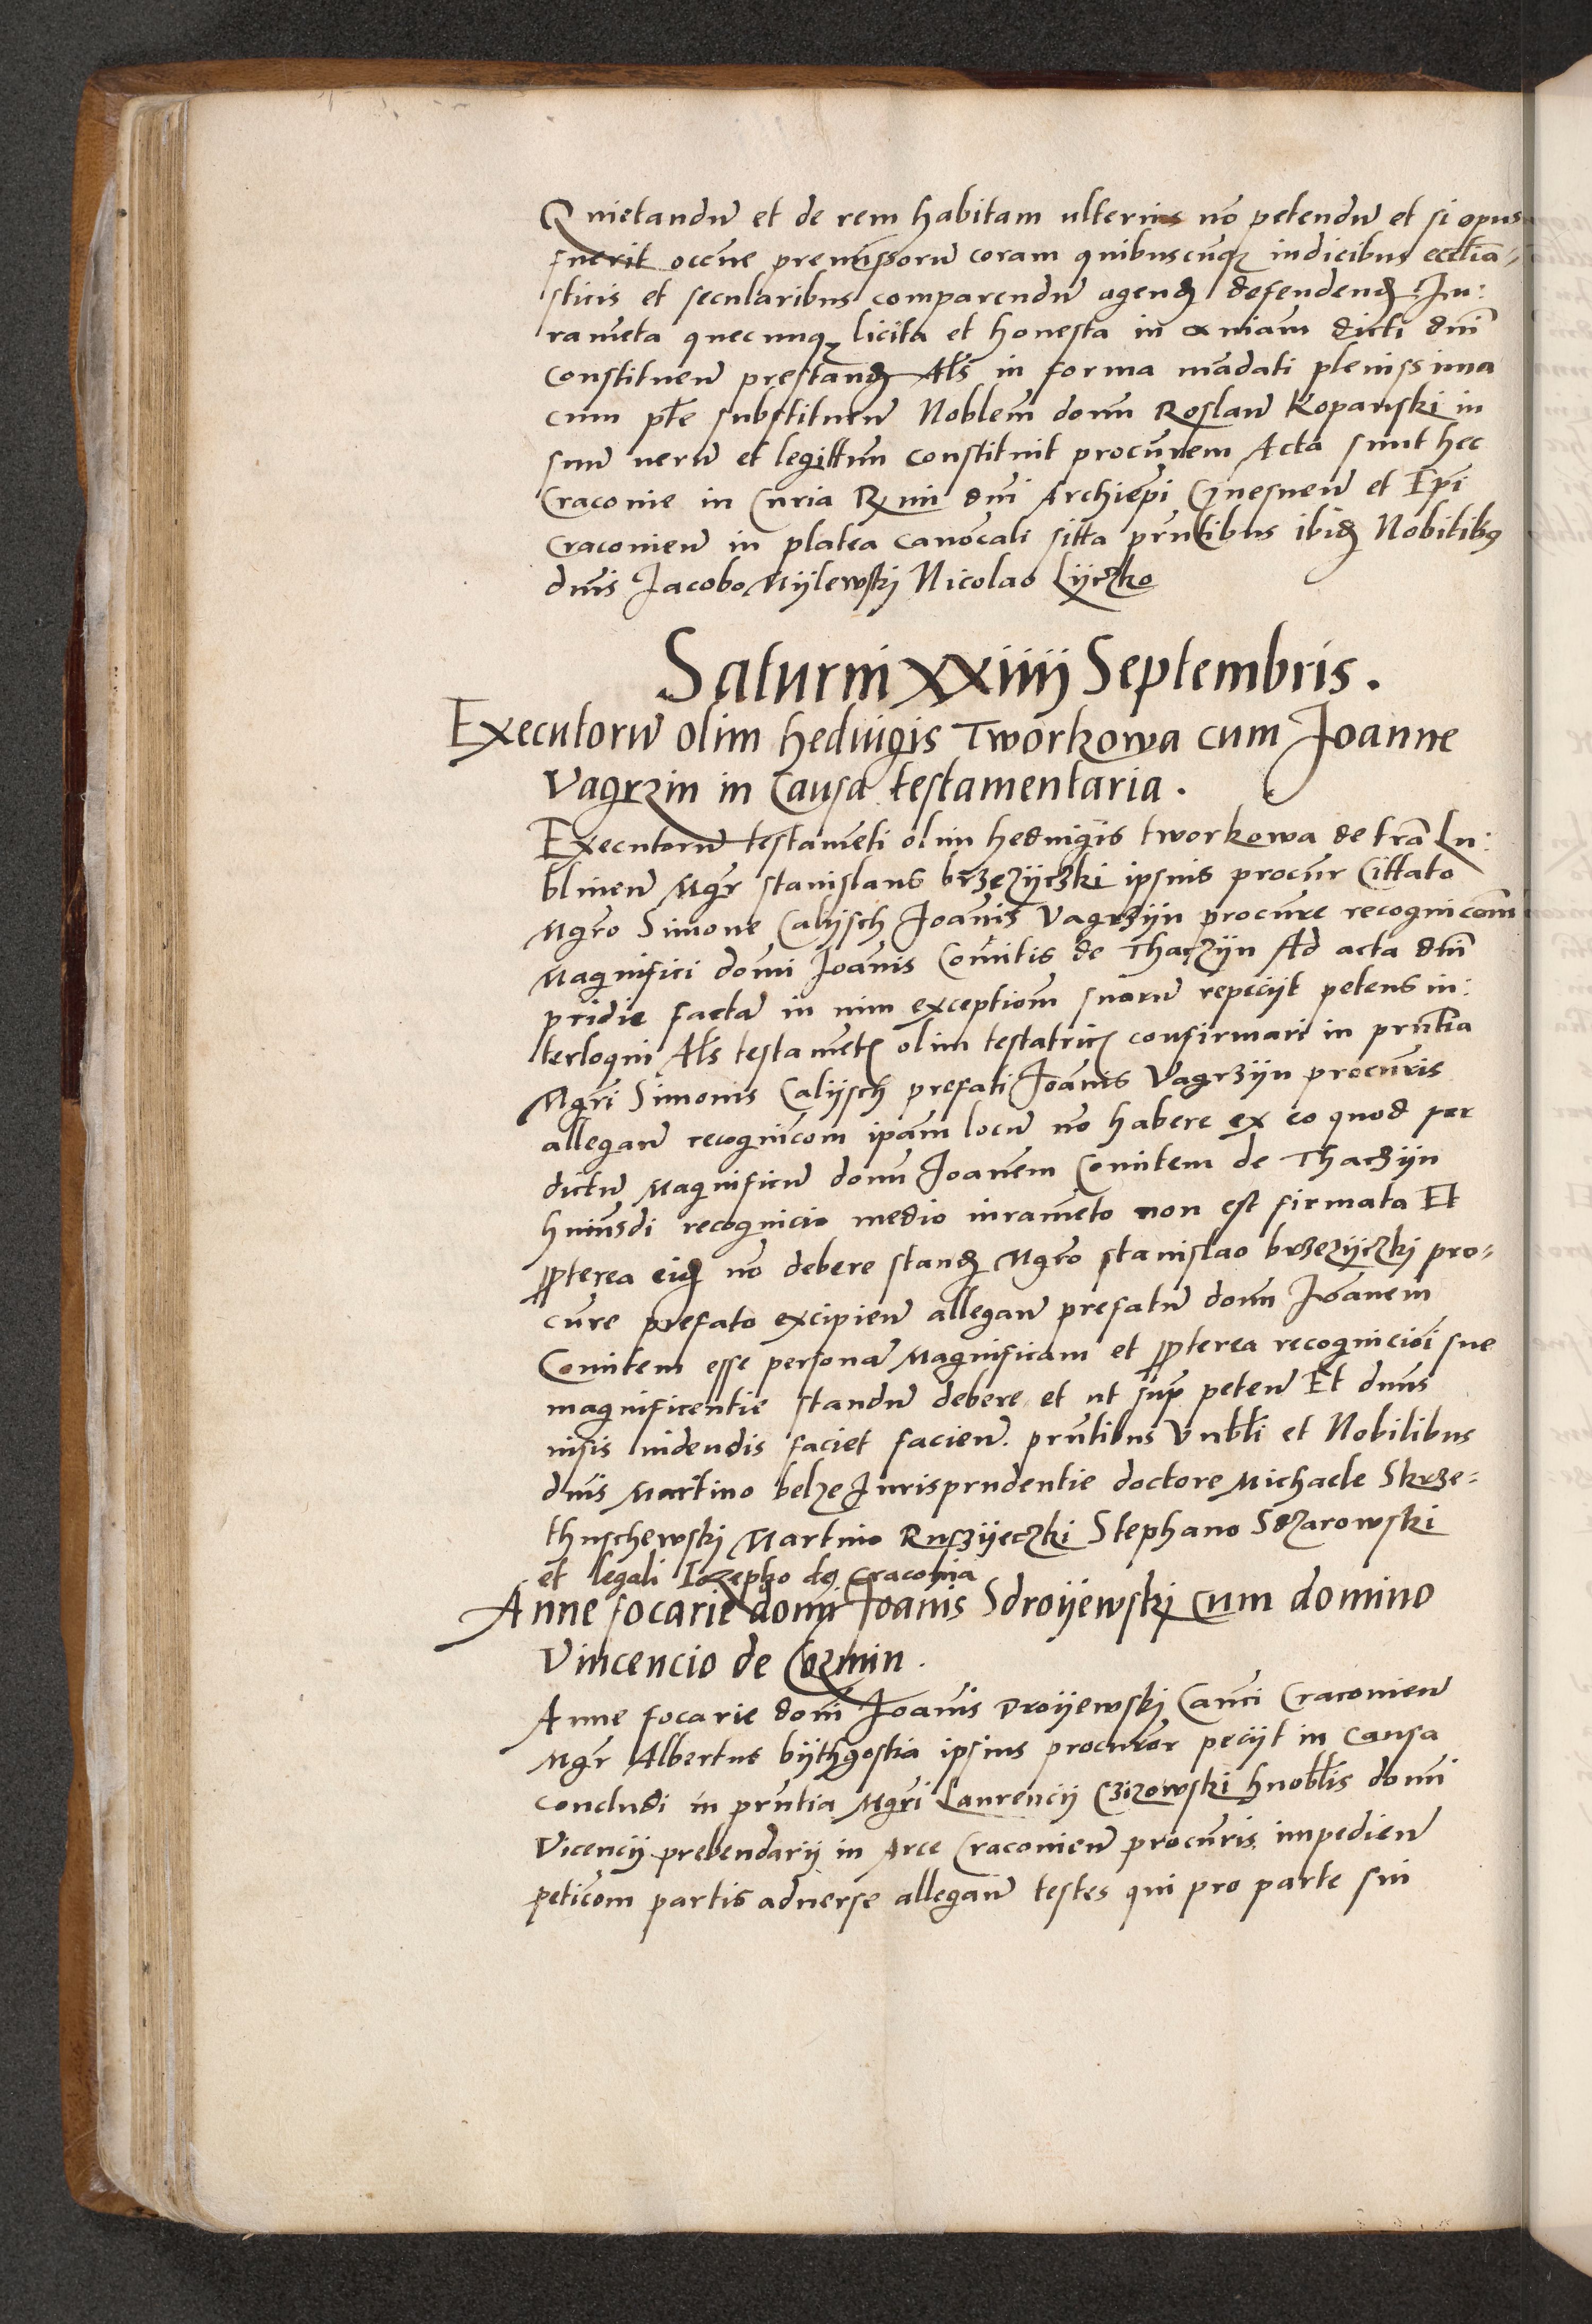 Quietandu et de rem habitam ulterius no petendu et si opus
fuerit occne premissoru coram quibuscuq iudicibus ecclia-
sticis et secularibus comparendu agend defendend Ju:
rameta quecunq licita et honesta in aniam dicti dni
constituen prestand Als in forma madati plenissima
cum pte substituen Noblem domn Roslau Koparski in
suu veru et legittm constituit procurem Acta sunt hec
Craconie in Curia Rmi dni Archiepi Gnesnen et Epi
Craconien in platea canocali sitta prntibus ibid Nobilibus
dnis Jacobo Mijlewskj Nicolao Lijczko
Saturni xxiiij Septembris.
Executoru olim heduigis Tworkowa cum Joanne
Vagrzin in Causa testamentaria.
Executoru testameti olim heduigis tworkowa de tra Lu:
blinen Mgr stanislaus brzezijczki ipsius procur Cittato
Mgro Simone Calijsch Joanis Vagrzijn procure recognicom
Magnifici domi Joanis Comitis de Thaczijn Ad acta dni
pridie facta in vim exceptiom suaru repecijt petens in:
terloqui Als testamet olim testatric confirmari in prntia
Mgri Simonis Calijsch prefati Joanis Vagrzijn procuris
allegan recognicom ipam locu no habere ex eo quod per
dictu Magnificu domn Joanem Comitem de Thaczijn
huiusdi recognicio medio iurameto non est firmata Et
propterea eid no debere stand Mgro stanislao brzezijczki pro-
cure prefato excipien allegan prefatu domn Joanem
Comitem esse persona Magnificam et propterea recognicioi sue
magnificentie standu debere et ut sup peten Et dnus
visis videndis faciet facien. prntibus Vnbli et Nobilibus
dnis Martino belze Jurisprudentie doctore Michaele Skrze-
thuschewskj Martino Ruszijeczki Stephano Sdzarowski
et legali Iozepho de Craconia
Anne focarie domi Joanis Sdroijewskj cum domino
Vincencio de Cozmin.
Anne focarie domi Joanis Droijewskj Canci Craconien
Mgr Albertus bijthgostia ipsius procurator pecijt in Causa
concludi in prntia Mgri Laurencij Czizowski hnoblis domi
Vicencij prebendarij in Arce Craconien procuris impedien
peticom partis aduerse allegan testes qui pro parte sui